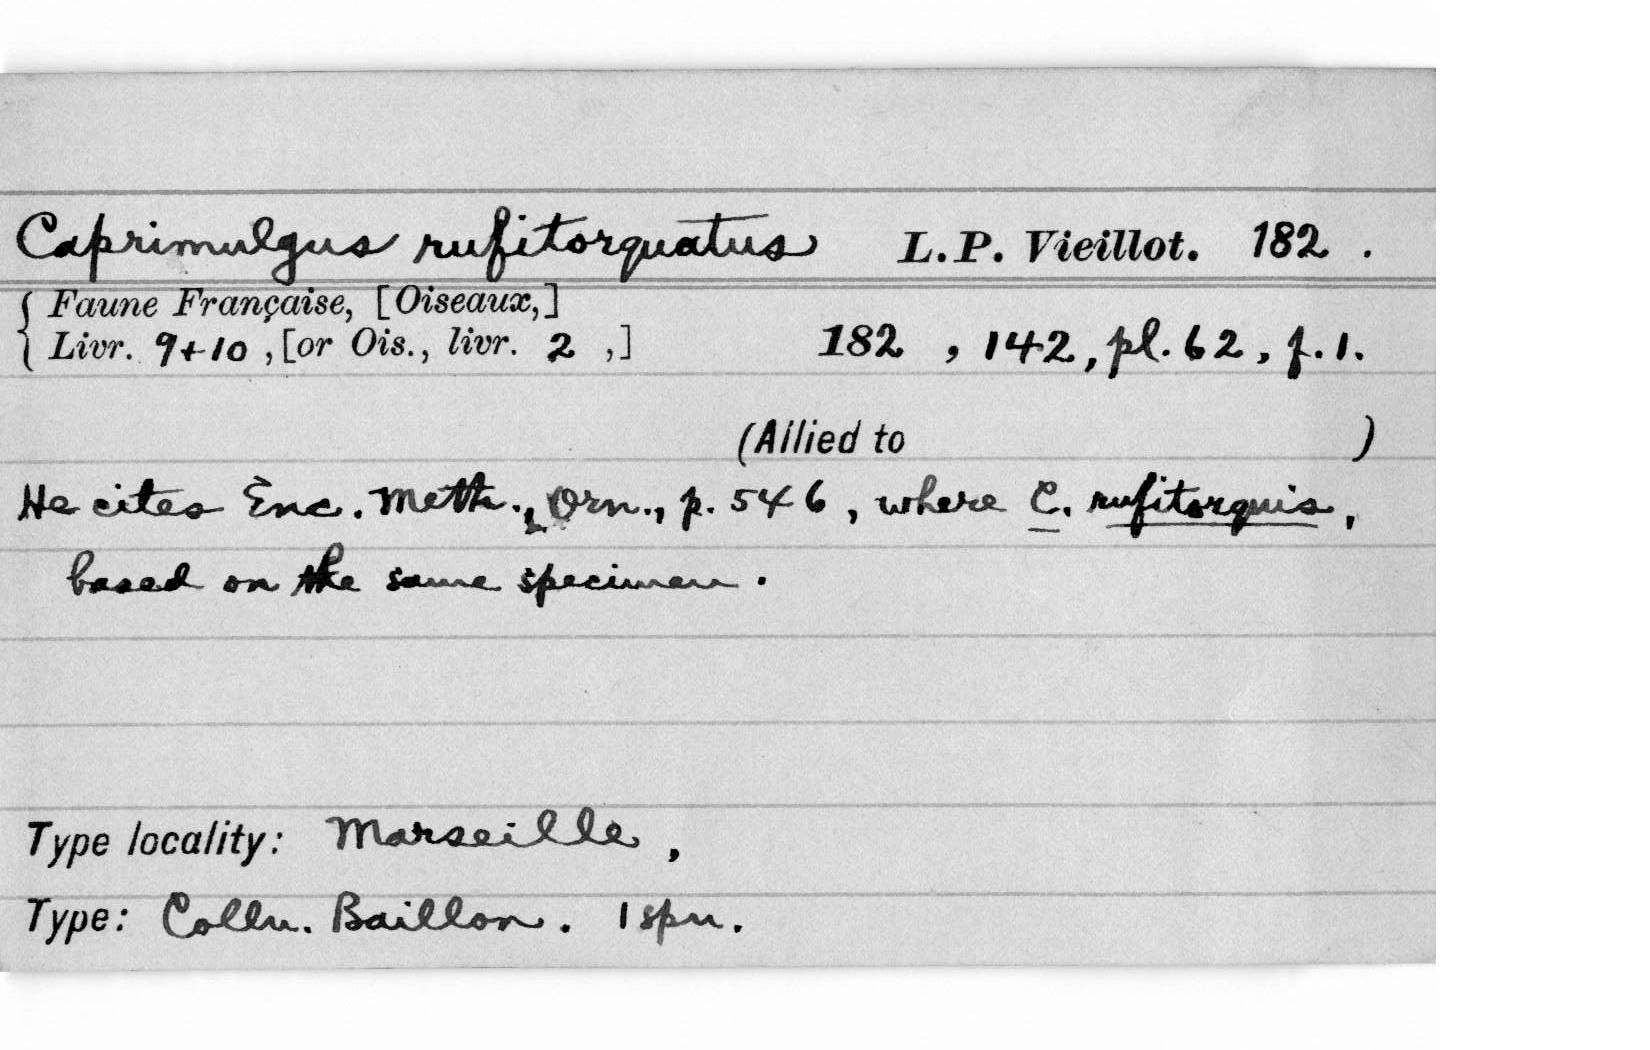 Caprimulgus rufitorquatus L.P. Vieillot. 182 .
Faune Française, [Oiseaux,]
Livr. 9+10 , [or Ois., livr. 2 ,] 182 , 142, pl. 62, f. 1.
(Allied to )
He cites Enc. Meth., Orn., p. 546, where C. rufitorquis,
based on the same specimen.
Type locality: Marseille,
Type: Colln. Baillon. 1 spn.